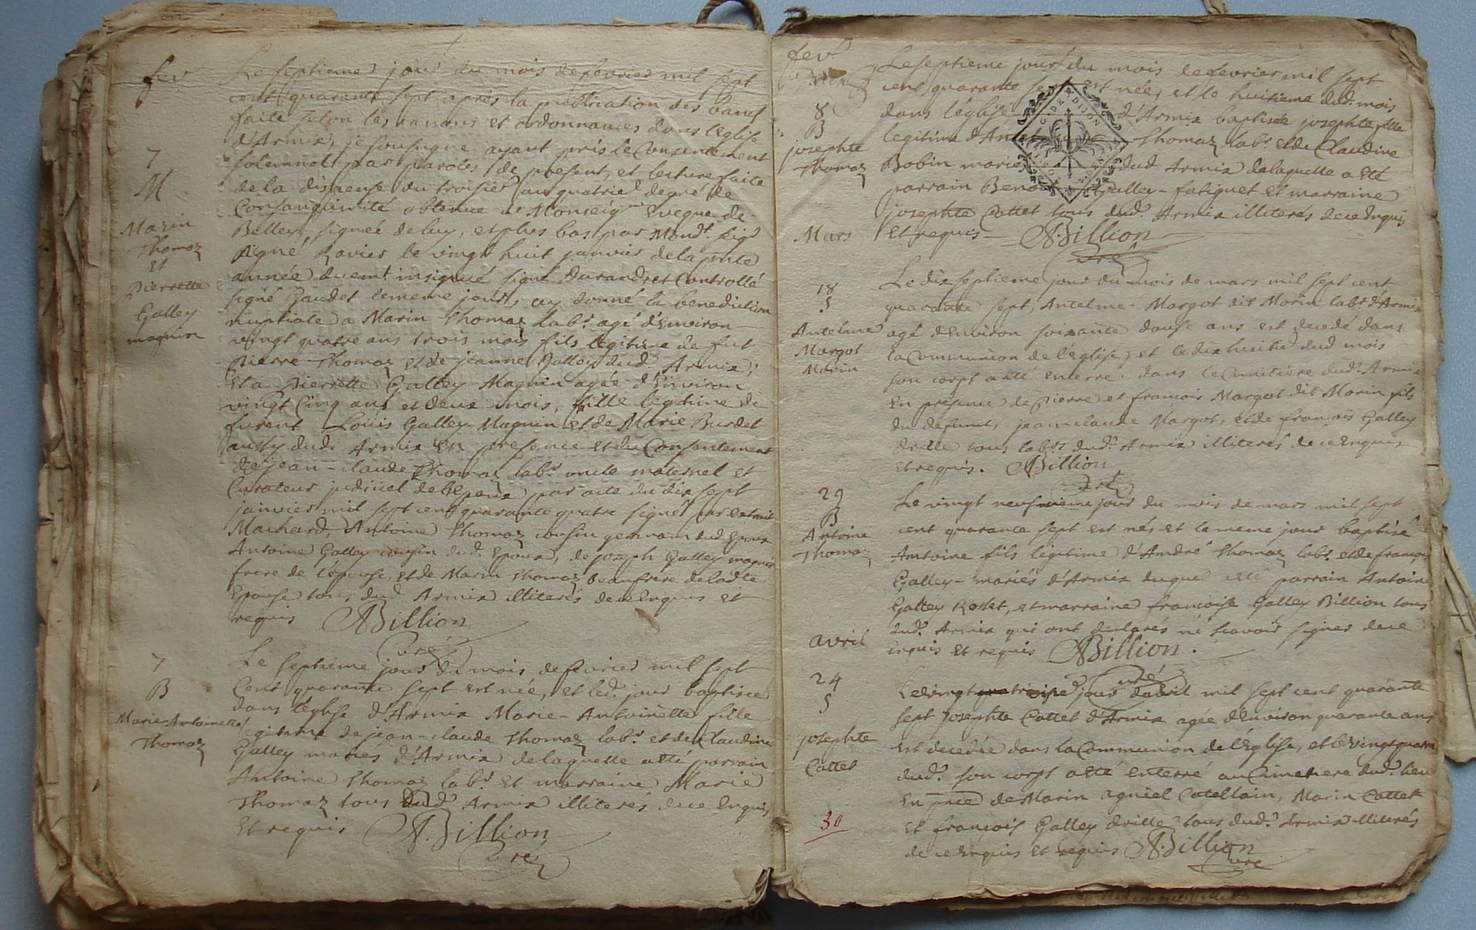 fev
Le septieme jour du mois de fevrier mil sept
cent quarante sept apres la publication des bancs
faite selon les canons et ordonnances dans l'eglise
d'Armix, je soussigne ayant pris le Consentement
solemnel par paroles de present, et lecture faite
7
de la dispense du troisie au quatrie degré de
M
Consanguinité obtenue de Monseigr Eveque de
Marin
Belley signée de luy, et plus bas par Mondt
Thomaz
signé Ravier le vingt huit janvier de la
et
année duement insignué signé Durand, et Controllé
pierrette
signé jaudet le meme jour, ay donné la benediction
Galley
nuptiale a Marin Thomaz labr agé d'Environ
magnin
vingt quatre ans trois mois fils legitime de fut
Pierre Thomaz et de jeanne Galley dud. Armix;
Et a pierrette Galley Magnin agée d'Environ
vingt Cinq ans et deux mois, fille legitime de
furent Louis Galley Magnin et de Marie Burdet
aussy dud. Armix En presence et du Consentement
de jean-claude Thomaz labr oncle maternel et
Curateur judiciel de l'Epoux par acte du dix sept
janvier mil sept cent quarante quatre signé par extrait
Machard, Antoine Thomaz cousin germain dud Epoux
Antoine Galley cousin dud. Epoux, de joseph Galley magnin
frere de l'epouse, et de Marin Thomaz beaufrere de ladte
Epouse tous dud. Armix illiterés de ce Enquis et
requis ABillion
curé
7
Le septieme jour du mois de fevrier mil sept
B
Cent quarante sept est née, et led. jour baptisée
Marie-Antoinette
dans l'eglise d'Armix Marie-Antoinette fille
Thomaz
legitime de jean-claude Thomaz labr et de Claudine
Galley mariés d'Armix de laquelle a été parrain
Antoine Thomaz labr. Et marraine Marie
Thomaz tous dud. Armix illiterés de ce Enquis
Et requis ABillion
curé
fevr
Le septieme jour du mois de fevrier mil sept
cent quarante est née, et le huitieme dud. mois
8
dans l'église d'Armix baptisée josephte fille
B
josephte
legitime d' Thomaz labr. et de Claudine
Thomaz
Bobin marié dud Armix de laquelle a été
parrain Galley-fatiguet et marraine
josephte Cattet tous dud. Armix illiterés de ce Enquis
Mars
Et requis ABillion
curé
18
Le dix septieme jour du mois de mars mil sept cent
S
quarante sept, Antelme Margot dit Morin labr d'Armix
Antelme
agé d'Environ soixante douze ans est decedé dans
Margot
la Communion de l'eglise, et le dix huitie dud mois
Morin
son corps a eté enterré dans le Cimetiere dud. Armix
En presence de pierre et francois Margot dit Morin fils
du defunt, jean claude Margot, et de francois Galley
drille tous labrs dud. Armix illiterés de ce Enquis
et requis. ABillion
curé
29
Le vingt neufvieme jour du mois de mars mil sept
B
cent quarante sept est né et le meme jour baptisé
Antoine
Thomaz
Antoine fils legitime d'André Thomaz labr. et de françoise
Galley-mariés d'Armix duquel a eté parrain Antoine
Galley Roslet, et marraine françoise Galley Billion tous
dud. Armix qui ont declarés ne scavoir signer de ce
avril
enquis et requis ABillion.
curé
24
Le vingt jour d'avril mil sept cent quarante
S
sept josephte Cattet d'Armix agée d'Environ quarante ans
josephte
Est decedée dans la Communion de l'Eglise, et le vingt quatre
Cattet
dud. son corps a eté enterré au Cimetiere dud. lieu
En pnce de Marin agniel Catellain, Marin Cattet
30
et francois Galley drille tous dud. Armix illiterés
de ce Enquis Et requis ABillion
curé